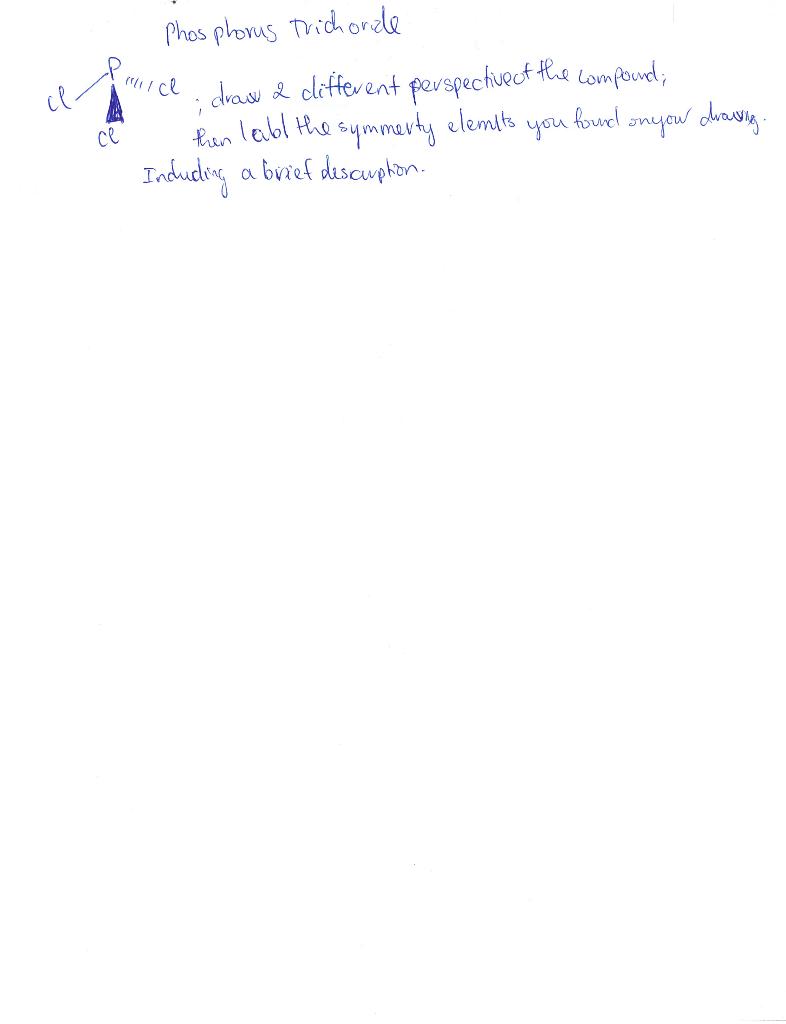 Phosphorus Trichoride
P
Cl ''''' Cl ; draw 2 different perspective of the compound;
Cl then labl the symmerty elemts you found on your drawing.
Including a brief description.